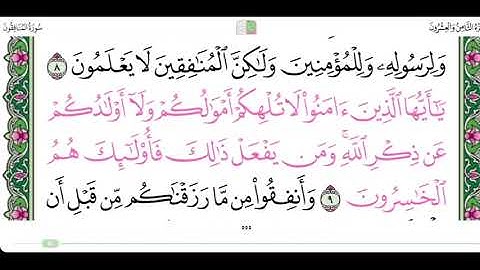 سُورَةُ المُنَافِقُونَ
الجُزْءُ الثَّامِنُ وَالعِشْرُونَ
وَلِرَسُولِهِۦ وَلِلْمُؤْمِنِينَ وَلَٰكِنَّ ٱلْمُنَٰفِقِينَ لَا يَعْلَمُونَ ٨
يَٰٓأَيُّهَا ٱلَّذِينَ ءَامَنُوا۟ لَا تُلْهِكُمْ أَمْوَٰلُكُمْ وَلَآ أَوْلَٰدُكُمْ
عَن ذِكْرِ ٱللَّهِ ۚ وَمَن يَفْعَلْ ذَٰلِكَ فَأُو۟لَٰٓئِكَ هُمُ
ٱلْخَٰسِرُونَ ٩ وَأَنفِقُوا۟ مِن مَّا رَزَقْنَٰكُم مِّن قَبْلِ أَن
٥٥٥